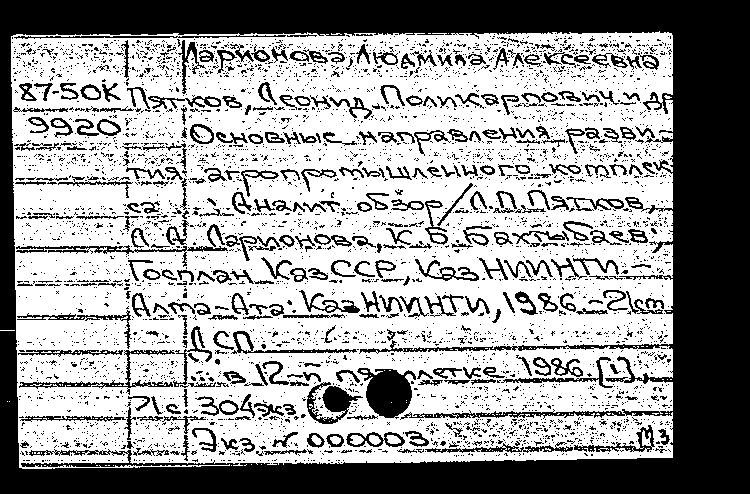 Ларионова, Людмила Алексеевна
87-50К Пятков, Леонид Поликарпович и др
9920 Основные направления разви-
тия агропромышленного комплек
са ...: Аналит. обзор / Л.П.Пятков,
Л.А. Ларионова, К.Б. Бахтыбаев;
Госплан КазССР, КазНИИНТИ. -
Алма-Ата: КазНИИНТИ, 1986. - 21см.
ДСП.
...: в 12-й пятилетке 1986. [1],
71с. 304экз.
Экз. № 000003. М.З